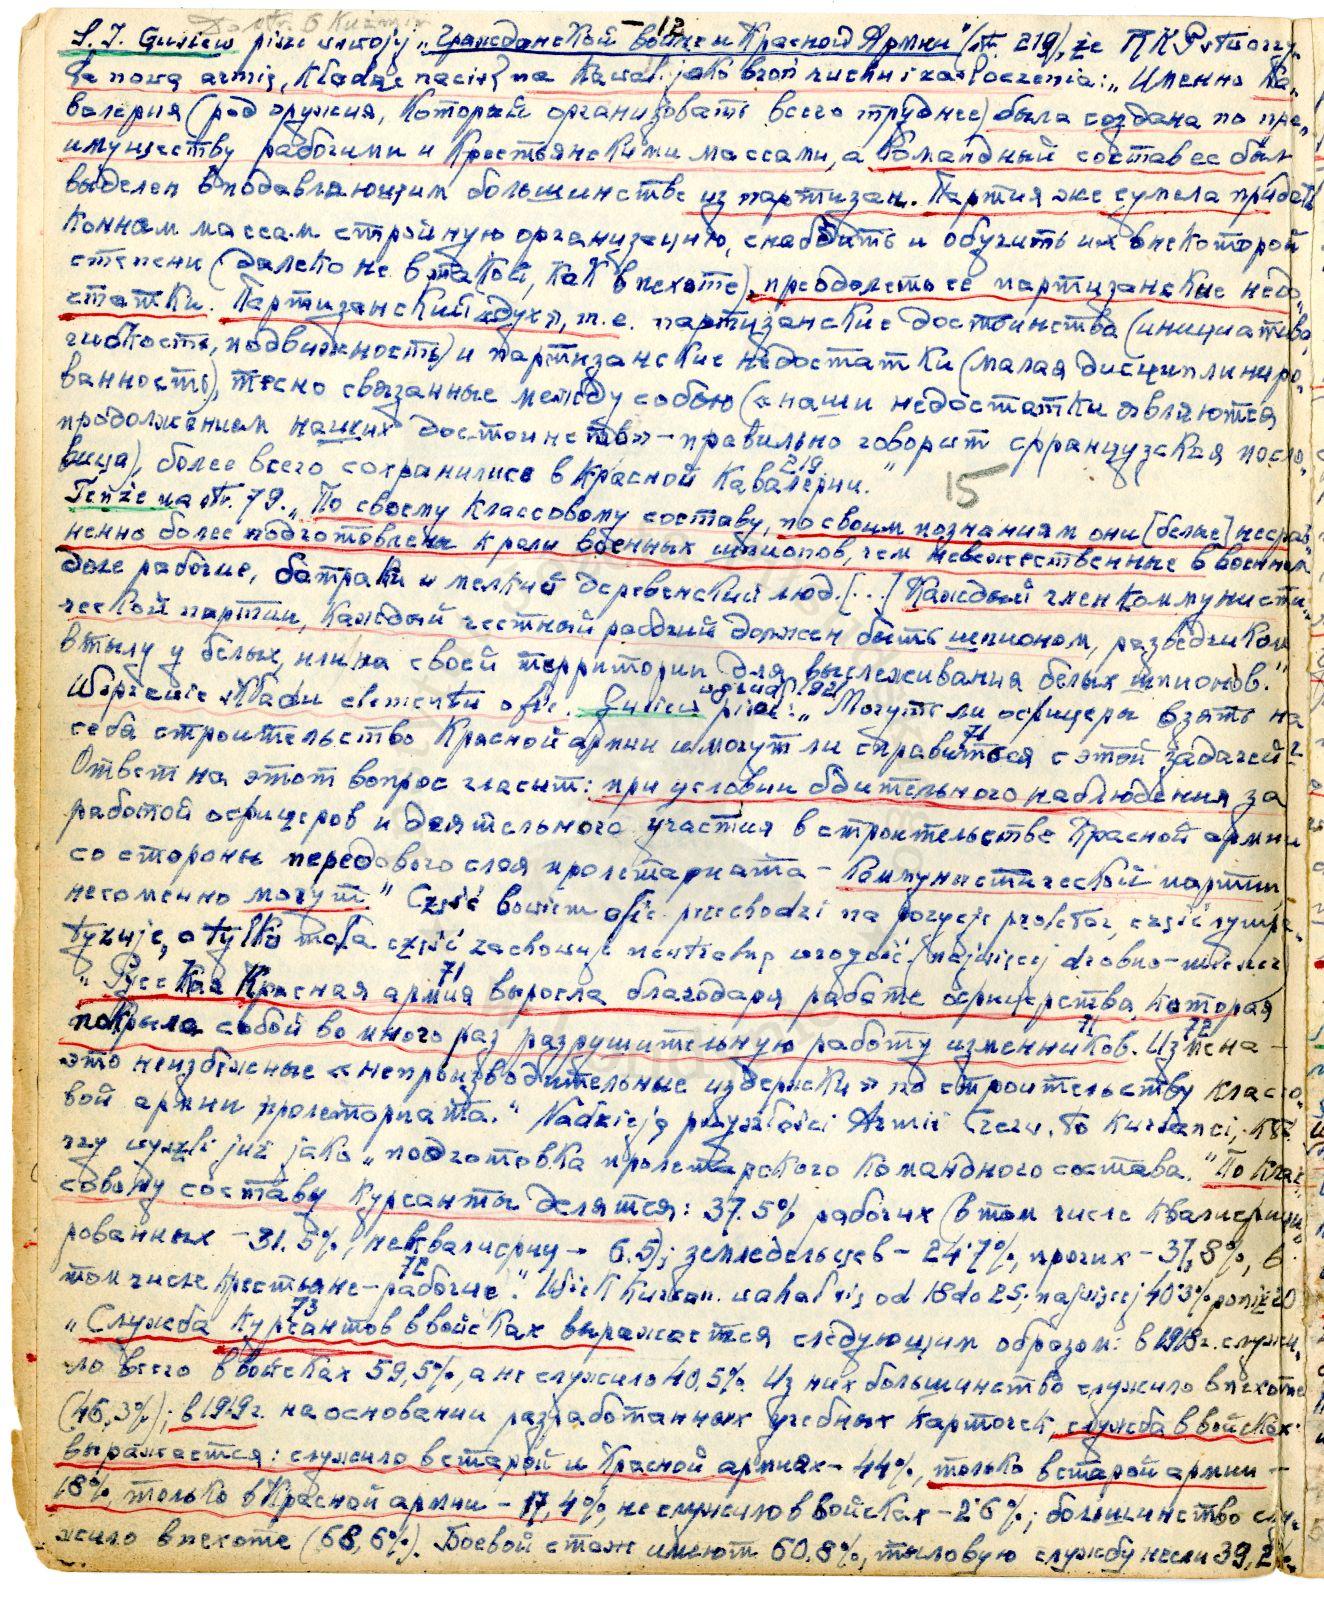 Do str. 6 Kuźmin
– 12
S. I. Gusiew pisze w swojej „Гражданской войне и Красной Армии" (str. 219), że RKP tworzy
se nową armię, kładąc nacisk na kawal. jako broń ruchu i zaskoczenia: „Именно Ка-
валерия (род оружия, который организовать всего труднее) была создана по пре-
имуществу рабочими и крестьянскими массами, а командный состав ее был
выделен в подавляющим большинстве из партизан. Партия же сумела придать
конным массам стройную организацию, снабдить и обучить их в некоторой
степени (далеко не в такой, как в пехоте), преодолеть ее партизанские недо-
статки. Партизанский «дух», т.е. партизанские достоинства (инициатива,
гибкость, подвижность) и партизанские недостатки (малая дисциплиниро-
ванность), тесно связанные между собою («наши недостатки являются
продолжением наших достоинств» – правильно говорит французская посло-
вица), более всего сохранились в Красной Кавалерии." 219
15
Tenże na str. 79. „По своему классовому составу, по своим познаниям они [белые] несрав-
ненно более подготовлены к роли военных шпионов, чем невежественные в военном
деле рабочие, батраки и мелкий деревенский люд. [...] Каждый член коммунисти-
ческой партии, каждый честный рабочий должен быть шпионом, разведчиком
в тылу у белых, или на своей территории для выслеживания белых шпионов."
Gusiew pisze: „Могут ли офицеры взять на
себя строительство Красной армии и могут ли справиться с этой задачей? 71
Ответ на этот вопрос гласит: при условии бдительного наблюдения за
работой офицеров и деятельного участия в строительстве Красной армии
со стороны передового слоя пролетариата – Коммунистической партии,
несомненно могут." Część bowiem ofic. przechodzi na pozycje proletar, część sympa-
tyzuje, a tylko mała część zachowuje
„Русская Красная армия выросла благодаря работе офицерства, которая 71
покрыла собой во много раз разрушительную работу изменников. 71 Измена – 72
это неизбежные «непроизводительные издержки» по строительству классо-
вой армии пролетариата." Nadzieją przyszłości Armii Czerw. to kursanci, któ-
rzy wyszli już jako „подготовка пролетарского командного состава." „По клас-
совому составу курсанты делятся: 37.5% рабочих (в том числе квалифици-
рованных – 31.5%, неквалифиц – 6.5); земледельцев – 24.7%, прочих – 37,8%, в
том числе крестьяне-рабочие". 72 Wiek kursan. wahał się od 18 do 25; najwięcej 40.3% poniż 20
„Служба курсантов в войсках выражается следующим образом: в 1918 г. служи- 73
ло всего в войсках 59,5%, а не служило 40,5%. Из них большинство служило в пехоте
(46,3%); в 1919 г. на основании разработанных учебных карточек, служба в войсках
выражается: служило в старой и Красной армиях – 44%, только в старой армии –
18%, только в Красной армии – 17,4%, не служило в войсках – 2 6%; большинство слу-
жило в пехоте (68,6%). Боевой стаж имеют 60.8%, тыловую службу несли 39,2%.